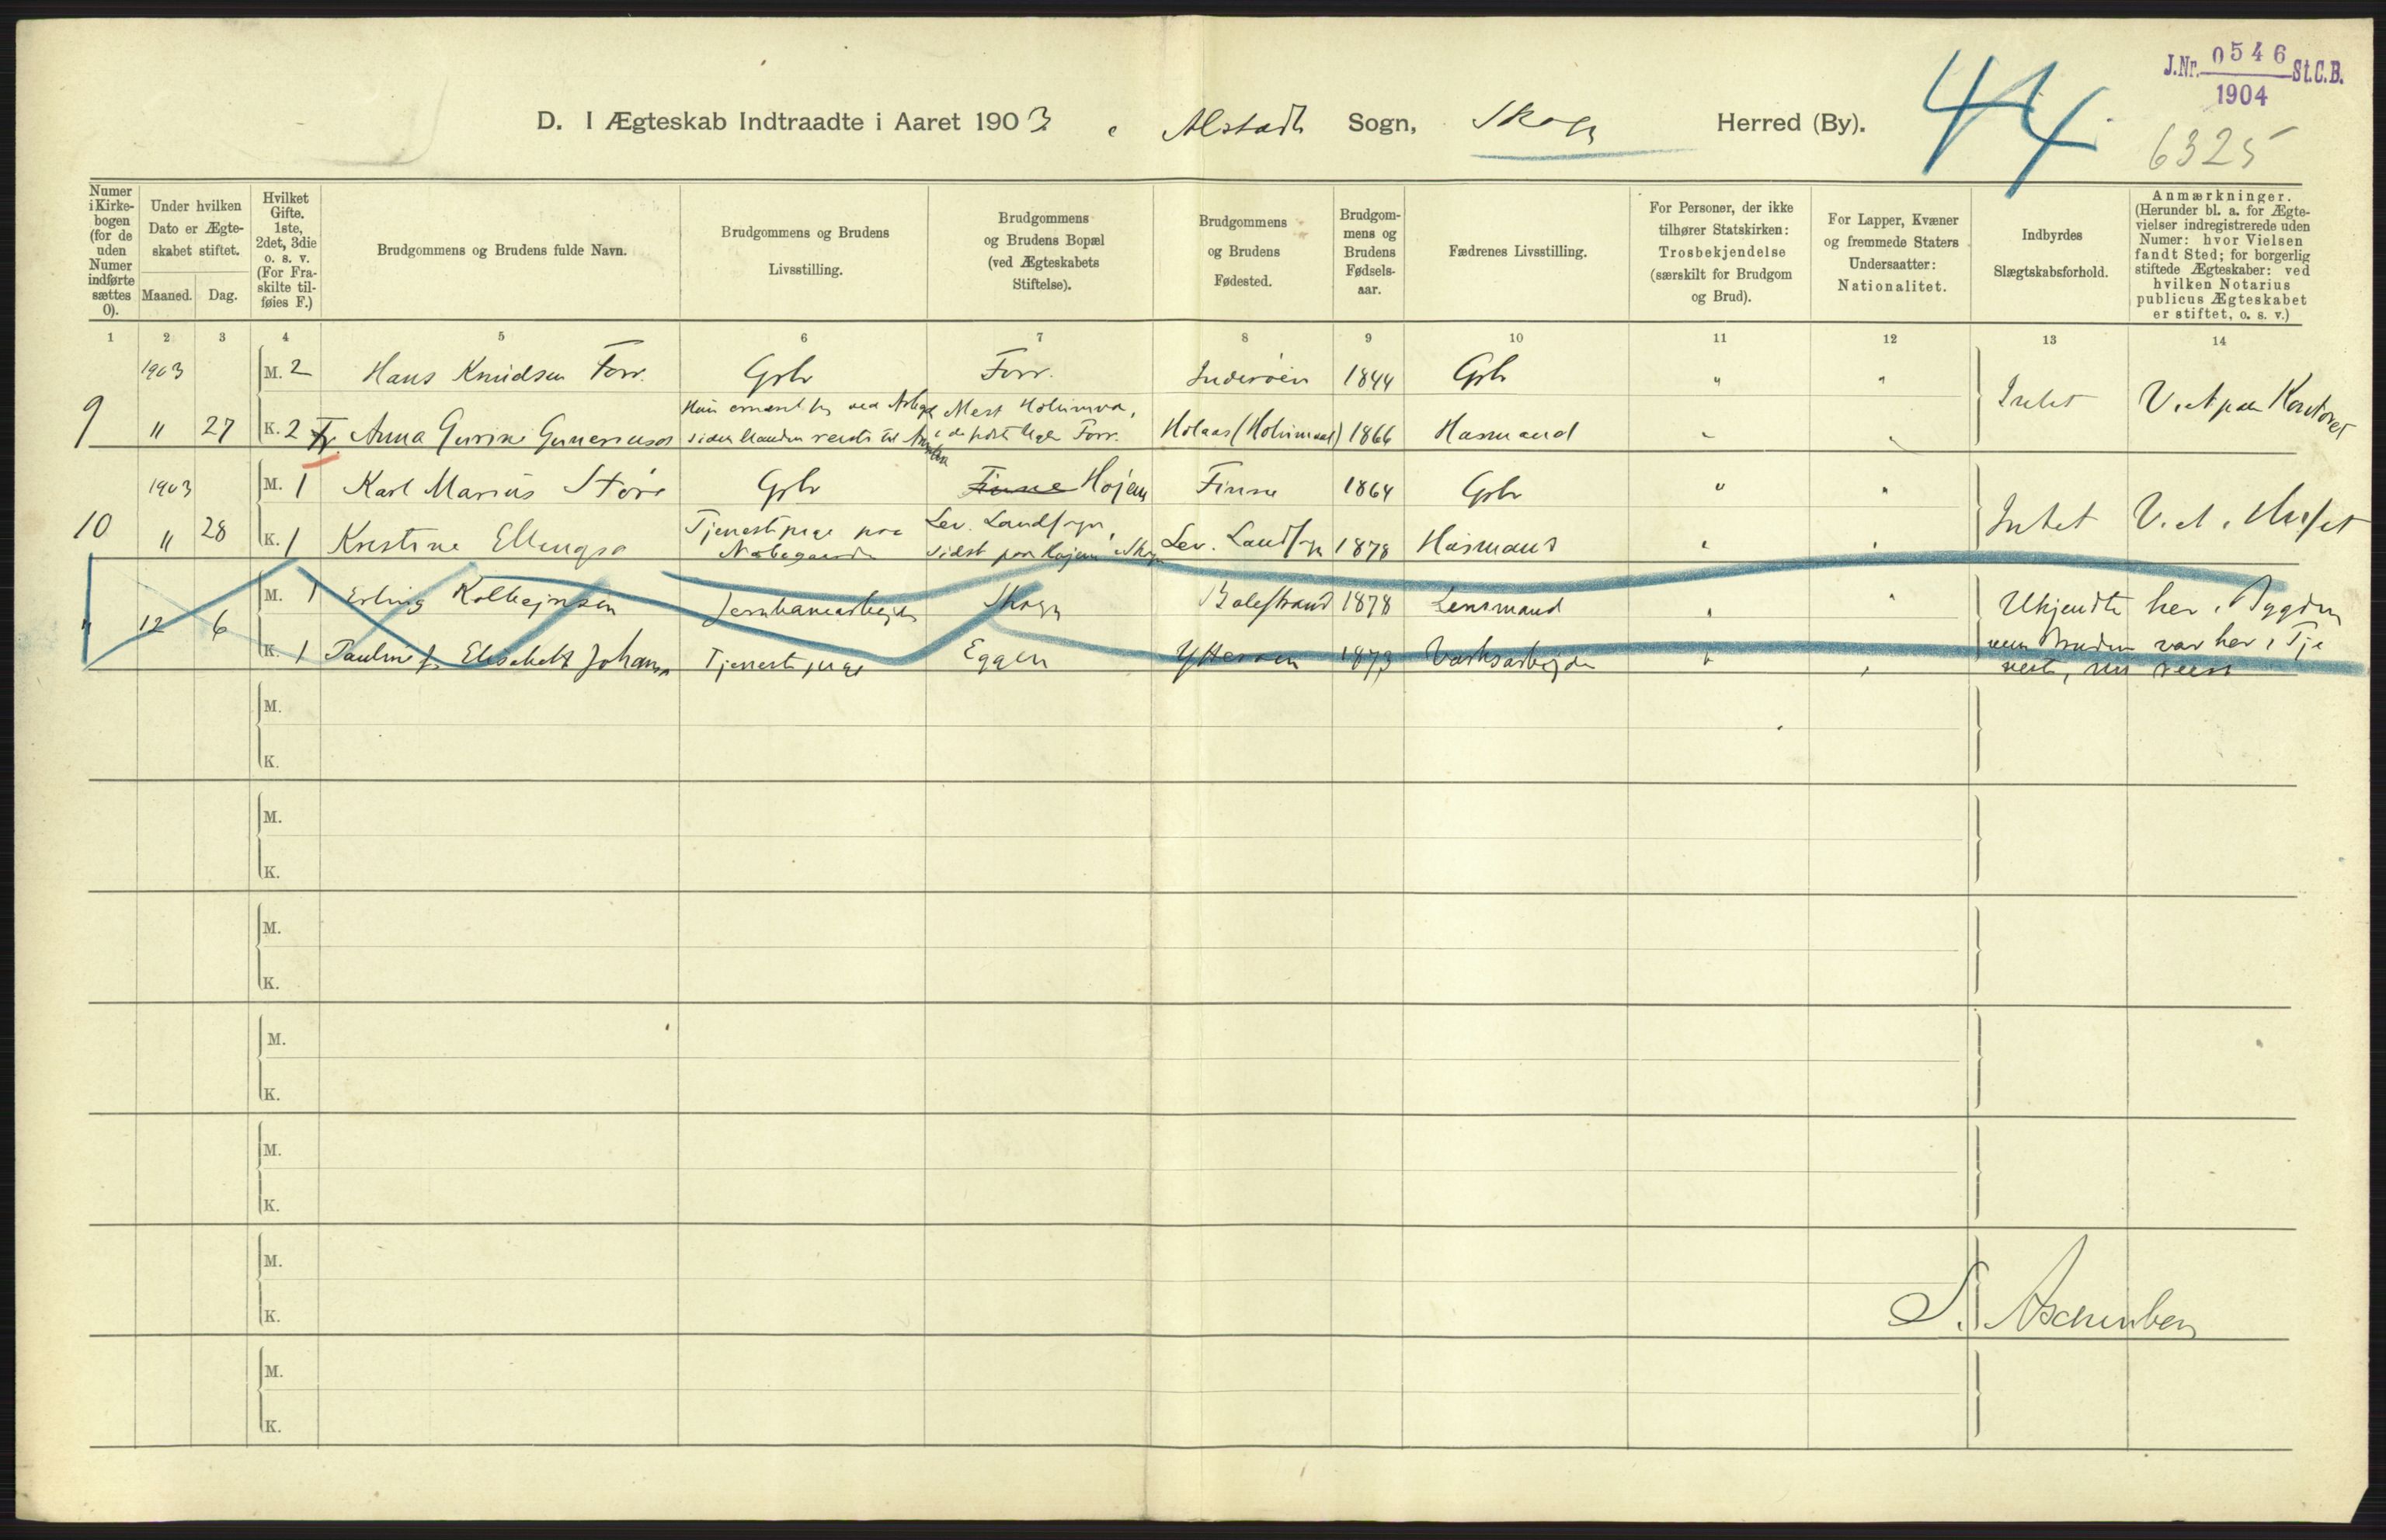 J.Nr. 0546 St.C.B.
1904
44
6325
D. I Ægteskab Indtraadte i Aaret 1903 i Alstadh Sogn, Skogn Herred (By).
Numer i Kirkebogen (for de uden Numer indførte sættes 0).
Under hvilken Dato er Ægteskabet stiftet.
Maaned.
Dag.
Hvilket Gifte. 1ste, 2det, 3die o. s. v. (For Fraskilte tilføies F.)
Brudgommens og Brudens fulde Navn.
Brudgommens og Brudens Livsstilling.
Brudgommens og Brudens Bopæl (ved Ægteskabets Stiftelse).
Brudgommens og Brudens Fødested.
Brudgommens og Brudens Fødselsaar.
Fædrenes Livsstilling.
For Personer, der ikke tilhører Statskirken: Trosbekjendelse (særskilt for Brudgom og Brud).
For Lapper, Kvæner og fremmede Staters Undersaatter: Nationalitet.
Indbyrdes Slægtskabsforhold.
Anmærkninger. (Herunder bl. a. for Ægtevielser indregistrerede uden Numer: hvor Vielsen fandt Sted; for borgerlig stiftede Ægteskaber: ved hvilken Notarius publicus Ægteskabet er stiftet, o. s. v.)
1 2 3 4 5 6 7 8 9 10 11 12 13 14
1903 M. 2 Hans Knudsen Forr. Gbr Forr. Inderøen 1844 Gbr " "
9 " 27 K. 2 Anna Gurine Forr. Holaas 1866 Husmand Intet
1903 M. 1 Karl Marius Støre Gbr Finne Højem Finne 1864 Gbr " "
10 " 28 K. 1 Kristine Ellingsd Tjenestpige paa Nabogaarden Lev. Landsogn, sidst paa Højem i Skogn Lev. Landsogn 1878 Husmand Intet
M. 1 Erling Kolbejnsen Jernbanearbejder Skogn Balestrand 1878 Lensmand
" 12 6 K. 1 Elisabeth Johans Tjenestepige Eggen Ytterøen 1873 Værksarbejder
Ukjendte her i Bygden
men Bruden var her i Tje
neste, nu reist
M.
K.
M.
K.
M.
K.
M.
K.
M.
K.
M.
K.
M.
K.